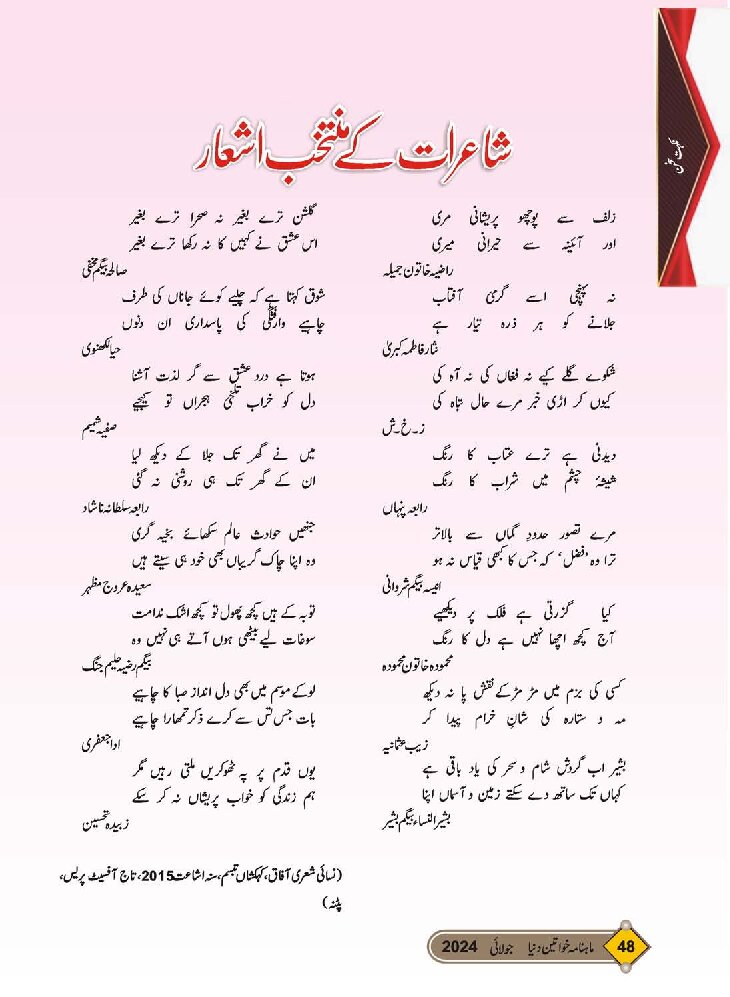 نکہت سخن
شاعرات کے منتخب اشعار
زلف سے پوچھو پریشانی مری
اور آئینہ سے حیرانی میری
راضیہ خاتون جمیلہ
نہ پہنچی اسے گرمیٔ آفتاب
جلانے کو ہر ذرہ تیار ہے
نثار فاطمہ کبریٰ
شکوے گلے کیے نہ فغاں کی نہ آہ کی
کیوں کر اڑی خبر مرے حال تباہ کی
ز۔خ۔ش
دیدنی ہے ترے عتاب کا رنگ
شیشۂ چشم میں شراب کا رنگ
رابعہ پنہاں
مرے تصور حدودِ گماں سے بالاتر
ترا وہ ’فضل‘ کہ جس کا کبھی قیاس نہ ہو
انیسہ بیگم شروانی
کیا گزرتی ہے فلک پر دیکھیے
آج کچھ اچھا نہیں ہے دل کا رنگ
محمودہ خاتون محمودہ
کسی کی بزم میں مڑ مڑ کے نقش پا نہ دیکھ
مہ و ستارہ کی شانِ خرام پیدا کر
زیب عثمانیہ
بشیر اب گردش شام و سحر کی یاد باقی ہے
کہاں تک ساتھ دے سکتے زمین و آسماں اپنا
بشیر النساء بیگم بشیر
گلشن ترے بغیر نہ صحرا ترے بغیر
اس عشق نے کہیں کا نہ رکھا ترے بغیر
صالحہ بیگم مخفی
شوق کہتا ہے کہ چلیے کوئے جاناں کی طرف
چاہیے وارفتگی کی پاسداری ان دنوں
حیا لکھنوی
ہوتا ہے درد عشق سے گر لذت آشنا
دل کو خراب تلخیٔ ہجراں تو کیجیے
صفیہ شمیم
میں نے گھر تک جلا کے دیکھ لیا
ان کے گھر تک ہی روشنی نہ گئی
رابعہ سلطانہ ناشاد
جنھیں حوادث عالم سکھائے بخیہ گری
وہ اپنا چاک گریباں بھی خود ہی سیتے ہیں
سعیدہ عروج مظہر
توبہ کے ہیں کچھ پھول تو کچھ اشک ندامت
سوغات لیے بیٹھی ہوں آتے ہی نہیں وہ
بیگم رضیہ حلیم جنگ
لو کے موسم میں بھی دل انداز صبا کا چاہیے
بات جس تس سے کرے ذکر تمھارا چاہیے
ادا جعفری
یوں قدم پر پہ ٹھوکریں ملتی رہیں مگر
ہم زندگی کو خواب پریشاں نہ کر سکے
زبیدہ تحسین
(نسائی شعری آفاق، کہکشاں تبسم، سنہ اشاعت 2015، تاج آفسیٹ پریس،
پٹنہ)
48 ماہنامہ خواتین دنیا جولائی 2024